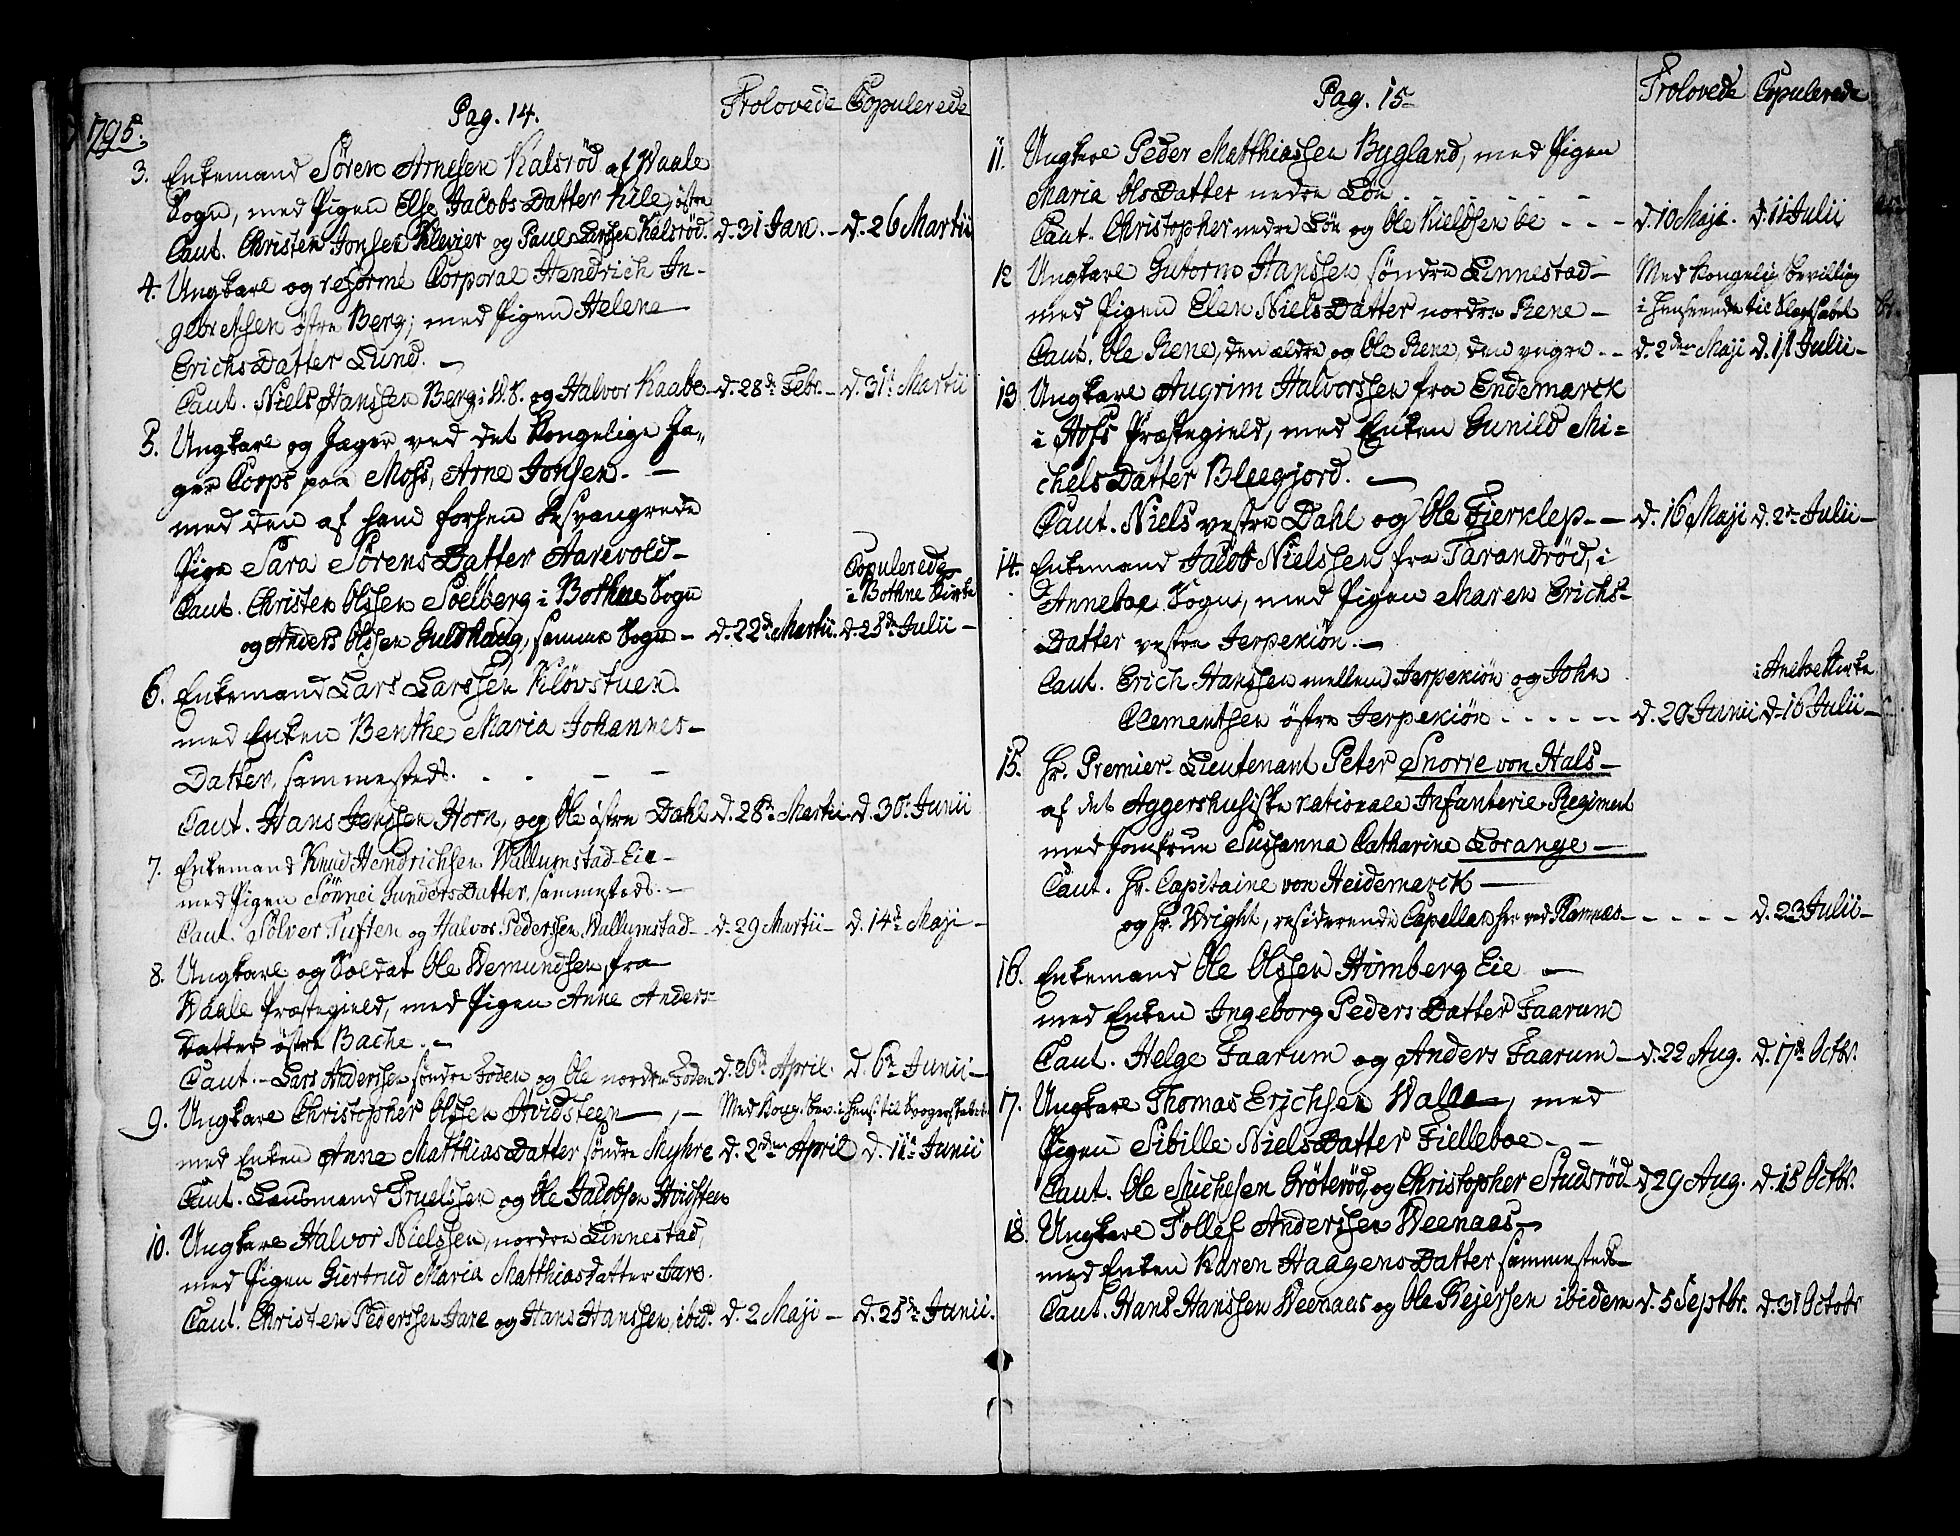 1795.
Pag. 14.
Trolovede Copulerede
3. Enkemand Sören Arnesen Kalsröd af Waale
Sogn, med Pigen Else Jacobs Datter Kile, östre
Caut. Christen Jonsen Klevier og Paul Larsen Kalsröd. d. 31 Jan. – d. 26 Martii
4. Ungkarl og reformé Corporal Hendrich In-
gebretsen östre Berg; med Pigen Helene
Erichs Datter Lund. –
Caut. Niels Hanssen Berg i W.S. og Halvor Kaabe – d. 28de Febr. – d. 31te Martii
5. Ungkarl og Jæger ved det Kongelige Jæ-
ger Corps paa Moss, Arne Jonsen. –
med den af ham forhen besvangrede
Pige Sara Sörens Datter Aarevold –
Caut. Christen Olssen Soelberg i Bothne Sogn
og Anders Olssen Guldhaug, samme Sogn – d. 22de Martii. d. 25de Julii –
Copulerede
i Bothne Kirke
6. Enkemand Lars Larssen Klövstuen.
med Enken Benthe Maria Johannes-
Datter, sammesteds. . – –
Caut. Hans Jenssen Horn, og Ole östre Dahl d. 28de Martii. d. 30te Junii
7. Enkemand Knud Hendrichsen Wallumstad-Eie –
med Pigen Sönnei Gunders Datter, sammesteds. –
Caut. Sölver Tuften og Halvor Pedersen Wallumstad – d. 29 Martii – d. 14de Maji –
8. Ungkarl og Soldat Ole Wemundsen fra
Waale Præstegield, med Pigen Anne Anders-
Datter östre Bache. –
Caut. – Lars Anderssen söndre Foden og Ole nordre Foden d. 26de April. d. 6te Junii –
9. Ungkarl Christopher Olssen Hvidsteen –, – Med Kong. bev. i Hens. til Svogerskabet
med Enken Anne Matthias Datter söndre Myhre d. 2den April d. 11te Junii
Caut. Lensmand Truelssen og Ole Jacobsen Hvidsten
10. Ungkarl Halvor Nielssen, nordre Linnestad,
med Pigen Giertrud Maria Matthias Datter Jare.
Caut. Christen Pederssen Jare og Hans Hanssen, ibid. d. 2 Maji – d. 25de Junii.
Pag. 15
Trolovede Copulerede
11. Ungkarl Peder Matthiassen Bygland, med Pigen
Maria Ols Datter nedre Lön . – – – –
Caut. Christopher nedre Lön og Ole Kieldsen be – – – d. 10 Maji. d. 11 Julii
12 Ungkarl Gutorm Hanssen söndre Linnestad –
med Pigen Elen Niels Datter nordre Rene –
Caut. Ole Rene, den ældre og Ole Rene, den yngre – – d. 2den Maji d. 11 Julii –
Med Kongelig Bevilling
i Henseende til Slægtskabet
13 Ungkarl Augrim Halvorssen fra Endemarck
i Hofs Præstegield, med Enken Gunild Mi-
chels Datter Bleegjord. –
Caut. Niels vestre Dahl og Ole Fierklep – – d. 16 Maji d. 2de Julii –
14. Enkemand Jacob Nielssen fra Tarandröd, i
Anneboe Sogn, med Pigen Maren Erichs-
Datter vestre Jerpekiön. –
Caut. Erich Hanssen mellem Jerpekiön og John
Clementsen östre Jerpekiön . – – – – – d. 20 Junii d. 16 Julii –
i Aneboe Kirke
15. Hr. Premier-Lieutenant Peter Snorre von Hals –
af det Aggershusiske nationale Infanterie-Regiment
med Jomfrue Susanna Catharine Lorange –
Caut. Hr. Capitaine von Heidemarck –
og Hr. Wright, residerende Capellan her ved Ramnæs – – – – – d. 23 Julii –
16. Enkemand Ole Olssen Himberg Eie –
med Enken Ingeborg Peders Datter Faarum
Caut. Helge Faarum og Anders Faarum – d. 22 Aug. d. 17de Octbr.
17. Ungkarl Thomas Erichsen Walle –, med
Pigen Sibille Niels Datter Fielleboe – –
Caut. Ole Michelsen Gröteröd, og Christopher Studsröd d. 29 Aug. d. 15 Octbr.
18. Ungkarl Tollef Anderssen Weenaas –
med Enken Karen Haagens Datter sammesteds –
Caut. Hans Hanssen Weenaas og Ole Rejersen ibidem d. 5 Septbr. d. 31 Octobr